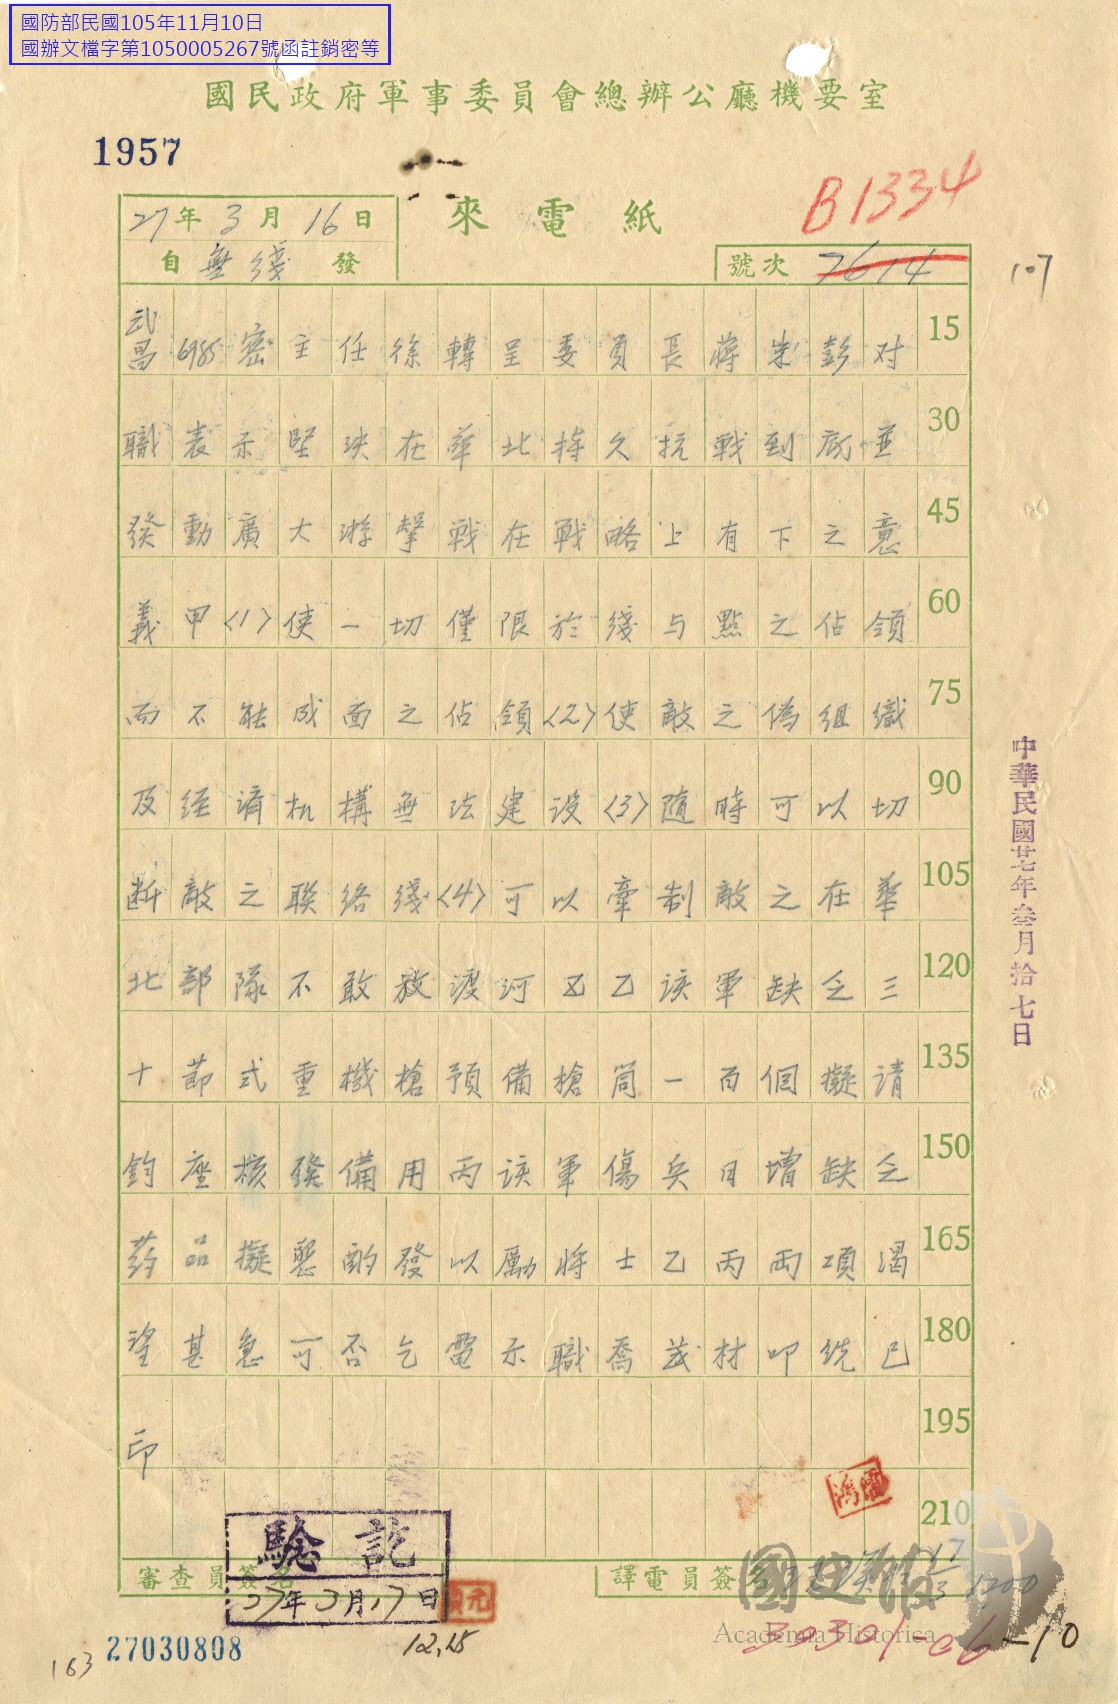 國防部民國105年11月10日
國辦文檔字第1050005267號函註銷密等
國民政府軍事委員會總辦公廳機要室
1957
B1334
27年3月16日
來電紙
自無綫發
號次 7614
107
武昌6985密主任徐轉呈委員長蔣朱彭对 15
職表示堅决在華北持久抗戰到底並 30
發動廣大游擊戰在戰略上有下之意 45
義甲<1>使一切僅限於綫与點之佔領 60
而不能成面之佔領<2>使敵之偽組織 75
及經濟机構無法建設<3>隨時可以切 90
断敵之聯絡綫<4>可以牽制敵之在華 105
北部隊不敢放渡河 乙該軍缺乏三 120
十節式重機槍預備槍筒一百個擬請 135
鈞座核發備用丙該軍傷兵日增缺乏 150
葯品擬懇酌發以勵將士乙丙両項渴 165
望甚急可否乞電示職喬茂材叩 已 180
印 195
210
中華民國廿七年叁月拾七日
驗訖
27年3月17日
審查員簽名
譯電員簽名
17
3 1200
國史館
Academia Historica
27030808
12,15
30301-06-10
163